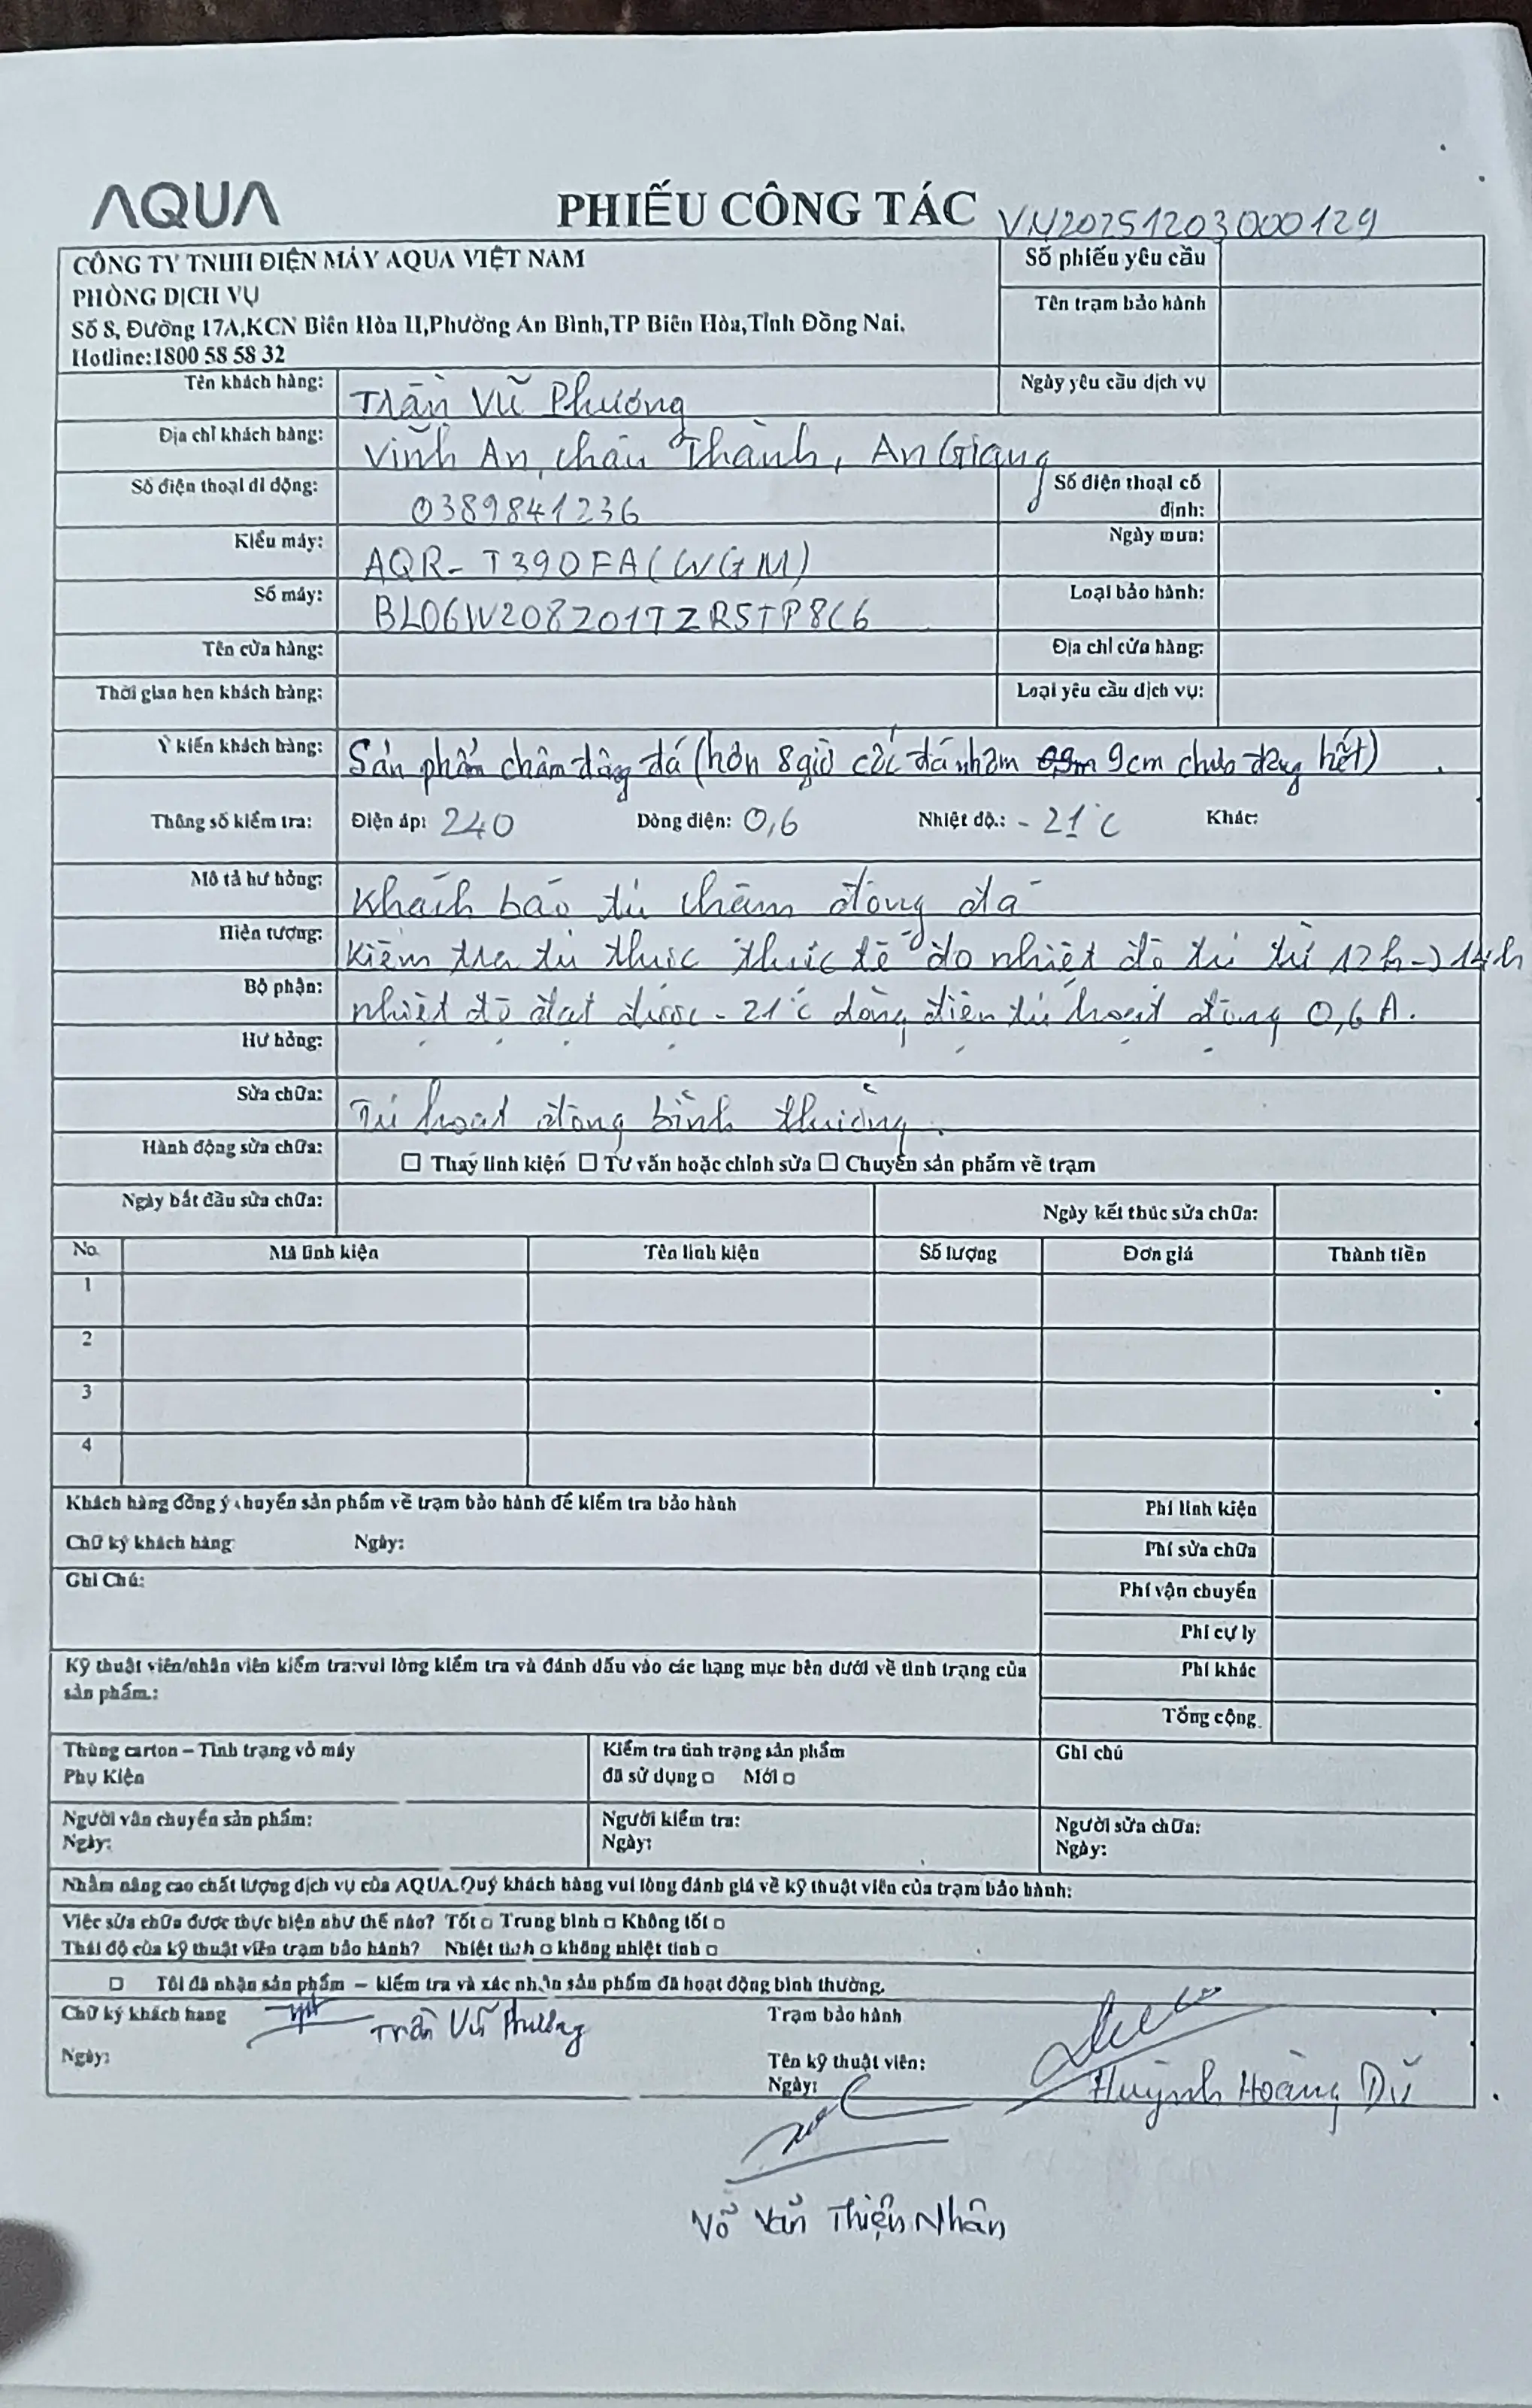 AQUA
PHIẾU CÔNG TÁC VN20251203000129
CÔNG TY TNHH ĐIỆN MÁY AQUA VIỆT NAM
PHÒNG DỊCH VỤ
Số 8, Đường 17A,KCN Biên Hòa II,Phường An Bình,TP Biên Hòa,Tỉnh Đồng Nai.
Hotline:1800 58 58 32
Số phiếu yêu cầu
Tên trạm bảo hành
Tên khách hàng: Trần Vũ Phương
Ngày yêu cầu dịch vụ
Địa chỉ khách hàng: Vĩnh An, Châu Thành, An Giang
Số điện thoại di động: 0389841236
Số điện thoại cố định:
Kiểu máy: AQR-T390FA(WGM)
Ngày mua:
Số máy: BL06W2082017ZR5TP8C6
Loại bảo hành:
Tên cửa hàng:
Địa chỉ cửa hàng:
Thời gian hẹn khách hàng:
Loại yêu cầu dịch vụ:
Ý kiến khách hàng: Sản phẩm chậm đông đá (hơn 8 giờ cốc đá nhôm 9cm chưa đông hết)
Thông số kiểm tra: Điện áp: 240 Dòng điện: 0,6 Nhiệt độ.: -21°C Khác:
Mô tả hư hỏng: Khách báo tủ chậm đông đá
Hiện tượng: Kiểm tra tủ thực thực tế đo nhiệt độ tủ từ 12h -> 14h
Bộ phận: nhiệt độ đạt được -21°C dòng điện tủ hoạt động 0,6A.
Hư hỏng:
Sửa chữa: Tủ hoạt động bình thường.
Hành động sửa chữa: □ Thay linh kiện □ Tư vấn hoặc chỉnh sửa □ Chuyển sản phẩm về trạm
Ngày bắt đầu sửa chữa:
Ngày kết thúc sửa chữa:
No. Mã linh kiện Tên linh kiện Số lượng Đơn giá Thành tiền
1
2
3
4
Khách hàng đồng ý chuyển sản phẩm về trạm bảo hành để kiểm tra bảo hành
Phí linh kiện
Chữ ký khách hàng Ngày:
Phí sửa chữa
Ghi Chú:
Phí vận chuyển
Phí cự ly
Kỹ thuật viên/nhân viên kiểm tra:vui lòng kiểm tra và đánh dấu vào các hạng mục bên dưới về tình trạng của
sản phẩm.:
Phí khác
Tổng cộng
Thùng carton – Tình trạng vỏ máy
Phụ Kiện
Kiểm tra tình trạng sản phẩm
đã sử dụng □ Mới □
Ghi chú
Người vận chuyển sản phẩm:
Ngày:
Người kiểm tra:
Ngày:
Người sửa chữa:
Ngày:
Nhằm nâng cao chất lượng dịch vụ của AQUA.Quý khách hàng vui lòng đánh giá về kỹ thuật viên của trạm bảo hành:
Việc sửa chữa được thực hiện như thế nào? Tốt □ Trung bình □ Không tốt □
Thái độ của kỹ thuật viên trạm bảo hành? Nhiệt tình □ không nhiệt tình □
□ Tôi đã nhận sản phẩm – kiểm tra và xác nhận sản phẩm đã hoạt động bình thường.
Chữ ký khách hang Trần Vũ Phương
Ngày:
Trạm bảo hành
Tên kỹ thuật viên: Huỳnh Hoàng Dũ
Ngày:
Võ Văn Thiện Nhân